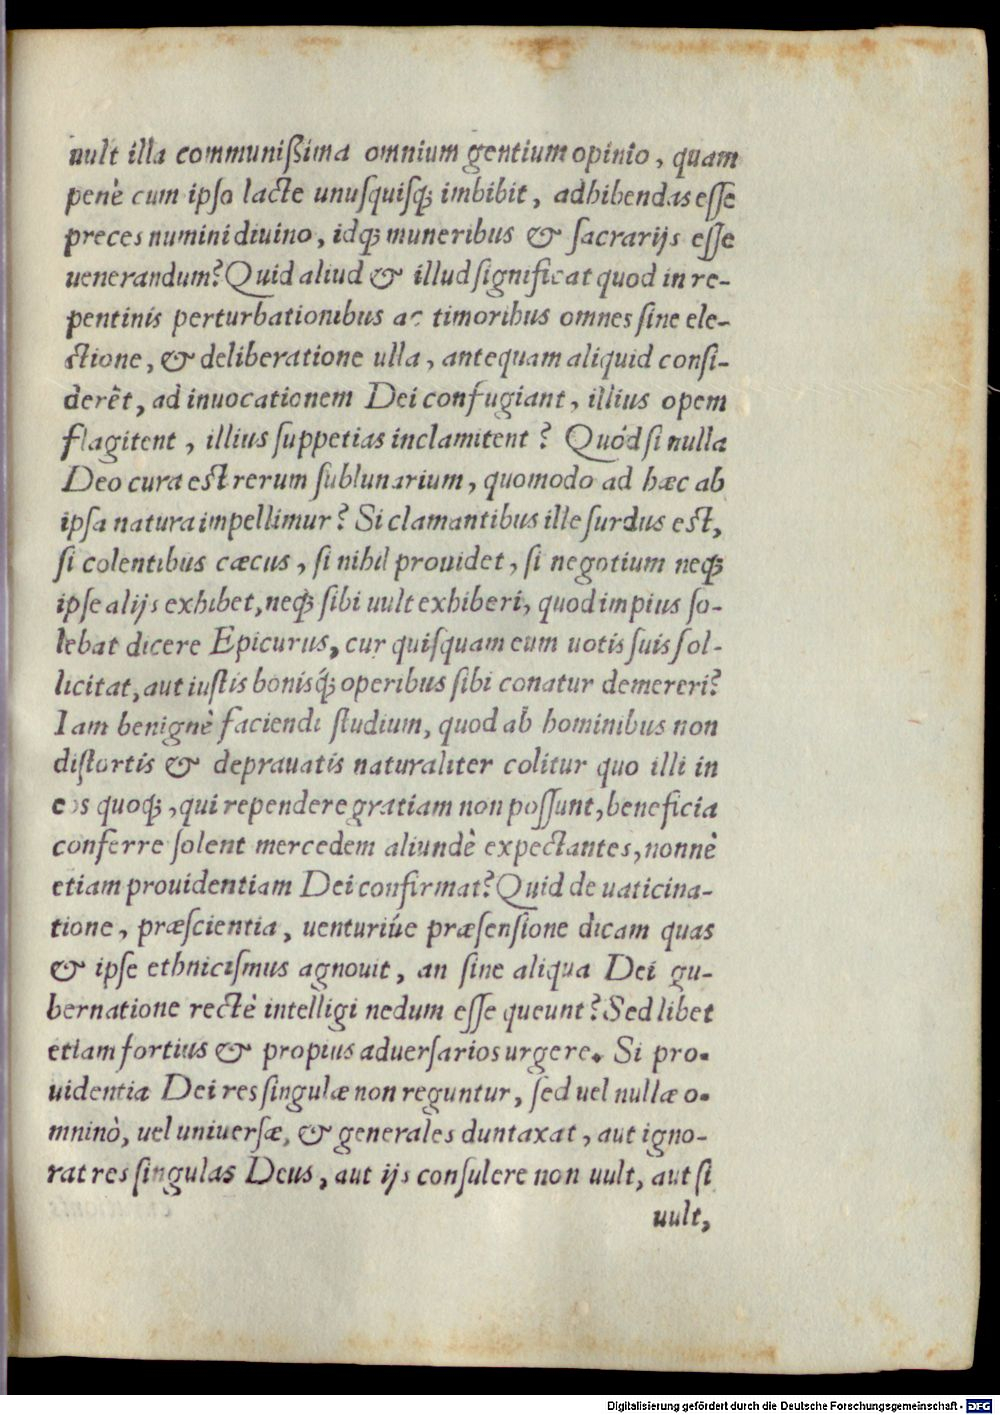 uult illa communißima omnium gentium opinio, quam
penè cum ipso lacte unusquisq́; imbibit, adhibendas esse
preces numini diuino, idq́; muneribus & sacrarijs esse
uenerandum? Quid aliud & illud significat quod in re-
pentinis perturbationibus ac timoribus omnes sine ele-
ctione, & deliberatione ulla, antequam aliquid consi-
derêt, ad inuocationem Dei confugiant, illius opem
flagitent, illius suppetias inclamitent? Quód si nulla
Deo cura est rerum sublunarium, quomodo ad hæc ab
ipsa natura impellimur? Si clamantibus ille surdus est,
si colentibus cæcus, si nihil prouidet, si negotium neq́;
ipse alijs exhibet, neq́; sibi uult exhiberi, quod impius so-
lebat dicere Epicurus, cur quisquam eum uotis suis sol-
licitat, aut iustis bonisq́; operibus sibi conatur demereri?
Iam benignè faciendi studium, quod ab hominibus non
distortis & deprauatis naturaliter colitur quo illi in
eos quoq́;, qui rependere gratiam non possunt, beneficia
conferre solent mercedem aliundè expectantes, nonnè
etiam prouidentiam Dei confirmat? Quid de uaticina-
tione, præscientia, uenturiúe præsensione dicam quas
& ipse ethnicismus agnouit, an sine aliqua Dei gu-
bernatione rectè intelligi nedum esse queunt? Sed libet
etiam fortius & propius aduersarios urgere. Si pro-
uidentia Dei res singulæ non reguntur, sed uel nullæ o-
mninò, uel uniuersæ, & generales duntaxat, aut igno-
rat res singulas Deus, aut ijs consulere non uult, aut si
uult,
Digitalisierung gefördert durch die Deutsche Forschungsgemeinschaft - DFG